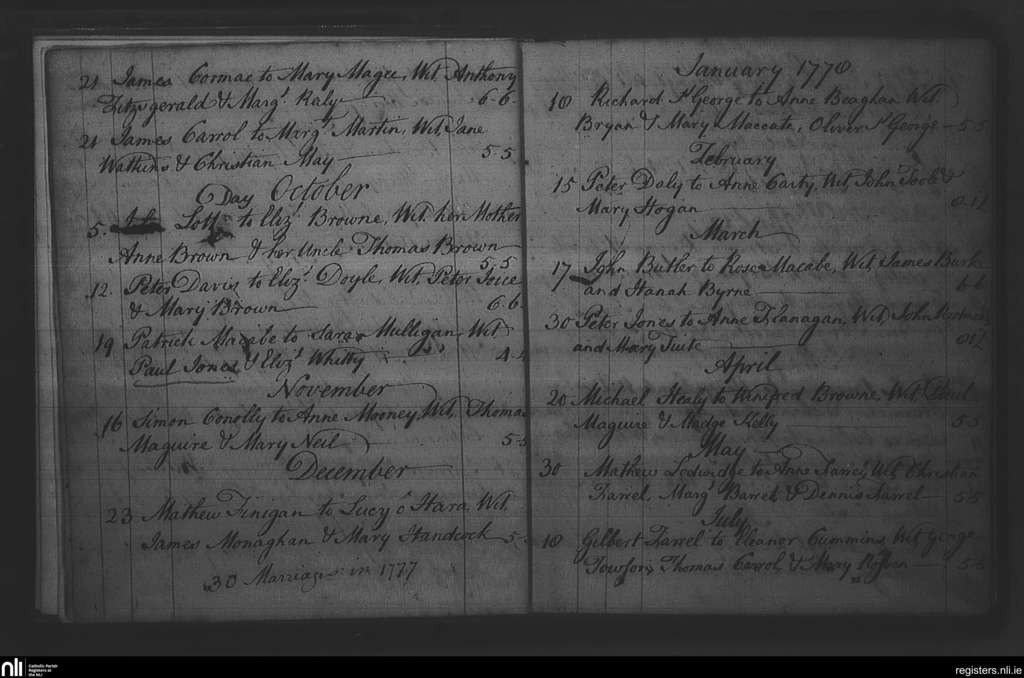 21 James Cormac to Mary Magee, Wit, Anthony
Fitzgerald & Margt. Raly 6-6
21 James Carrol to Margt. Martin, Wit, Jane
Watkins & Christian May 5-5
Day October
5. to Eliz. Browne, Wit. her Mother
Anne Brown & her Uncle Thomas Brown
5/5
12. Peter Davis to Eliz. Doyle, Wit, Peter Joice
& Mary Brown 6-6
19 Patrick Macabe to Sara Mulligan, Wit
Paul Jones & Eliz. Whitty 4-4
November
16 Simon Conolly to Anne Mooney, Wit, Thomas
Maguire & Mary Neil 5-5
December
23 Mathew Finigan to Lucy o Hara, Wit,
James Monaghan & Mary Handcock 5-
30 Marriages in 1777
January 1778
18 Richard St George to Anne Beaghan Wit.
Bryan & Mary Maccabe, Oliver St George 5-5
February
15 Peter Daly to Anne Carty, Wit, John Toole &
Mary Hogan
March
17 John Butler to Rose Macabe, Wit, James Burke
and Hanah Byrne 6-6
30 Peter Jones to Anne Flanagan, Wit, John
and Mary Tuite
April
20 Michael Healy to Winifred Browne, Wit, Paul
Maguire & Madge Kelly 5-5
May
30 Mathew Ledwidge to Anne Farrel, Wit, Christian
Farrel, Margt. Barret & Dennis Farrel 5-5
July
18 Gilbert Farrel to Eleanor Cummins, Wit George
Towson, Thomas Carrol, & Mary 5-5
nli
Catholic Parish
Registers at
the NLI
registers.nli.ie